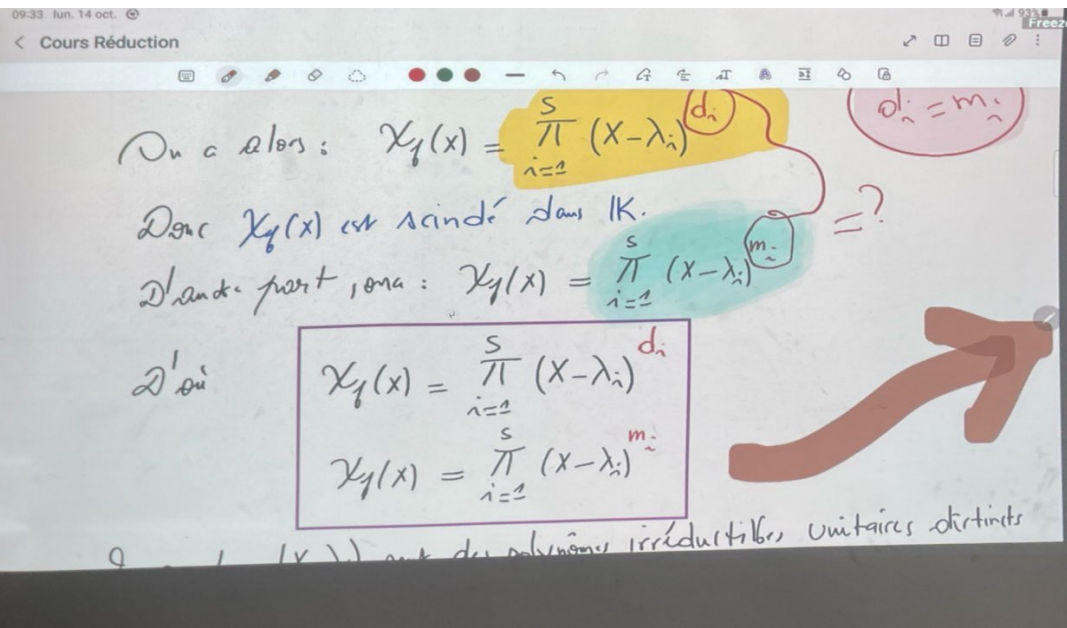 09:33 lun. 14 oct.
93%
Freeze
< Cours Réduction
On a alors : χ_f(x) = ∏_{i=1}^{s} (X-λ_i)^{d_i}
d_i = m_i
Donc χ_f(x) est scindé dans IK.
= ?
D'autre part, on a : χ_f(x) = ∏_{i=1}^{s} (X-λ_i)^{m_i}
D'où χ_f(x) = ∏_{i=1}^{s} (X-λ_i)^{d_i}
χ_f(x) = ∏_{i=1}^{s} (X-λ_i)^{m_i}
des polynômes irréductibles unitaires distincts